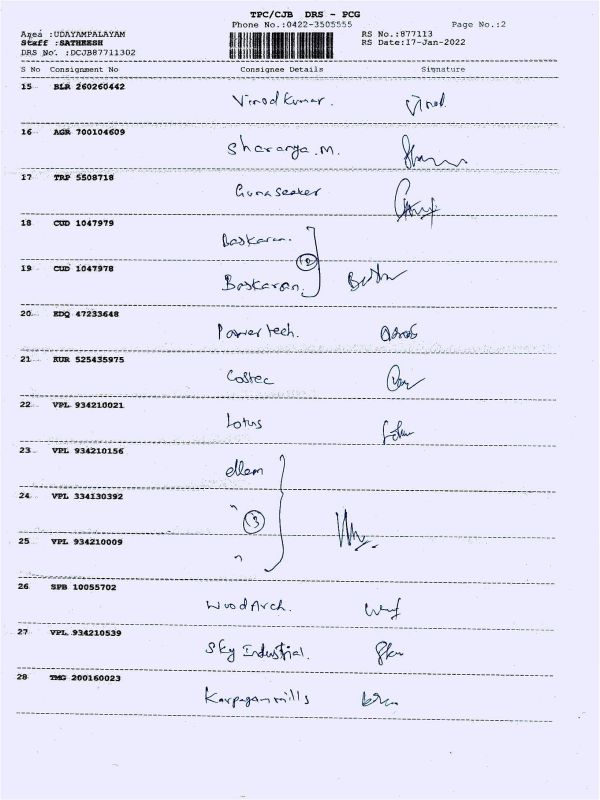 TPC/CJB DRS - PCG
Phone No.:0422-3505555 Page No.:2
Area :UDAYAMPALAYAM RS No.:877113
Staff :SATHEESH RS Date:17-Jan-2022
DRS No. :DCJB87711302
S No Consignment No Consignee Details Signature
15 BLR 260260442
Vinod Kumar. Vinod.
16 AGR 700104609
Sharanya.M.
17 TRP 5508718
Gunaseaker
18 CUD 1047979
Baskaran.
19 CUD 1047978
Baskaran.
20 EDQ 47233648
Power tech.
21 RUR 525435975
Costec
22 VPL 934210021
Lotus
23 VPL 934210156
ellem
24 VPL 334130392
" 3
25 VPL 934210009
"
26 SPB 10055702
Wood Arch.
27 VPL 934210539
Sky Industrial.
28 TMG 200160023
Karpagam mills